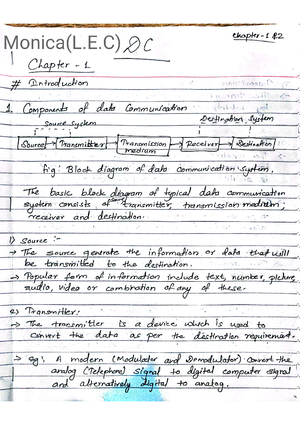 Chapter-1 &2
Monica(L.E.C) DC
Chapter - 1
# Introduction
1. Components of data Communication
Source System Destination System
Source Transmitter Transmission medium Receiver Destination
fig: Block diagram of data communication system.
The basic block diagram of typical data communication
system consists of source, transmitter, transmission medium,
receiver and destination.
1) Source :-
→ The source generate the information or data that will
be transmitted to the destination.
→ Popular form of information include text, number, picture,
audio, video or combination of any of these.
2) Transmitter:
→ The transmitter is a device which is used to
convert the data as per the destination requirement.
→ eg: A modern (Modulator and Demodulator) convert the
analog (Telephone) signal to digital computer signal
and alternatively digital to analog.